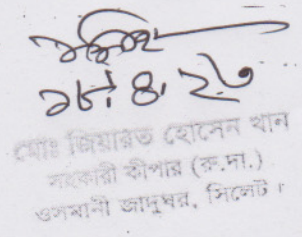 ১৮.৪.২৩
মোঃ জিয়ারত হোসেন খান
সহকারী কীপার (রু.দা.)
ওসমানী জাদুঘর, সিলেট।